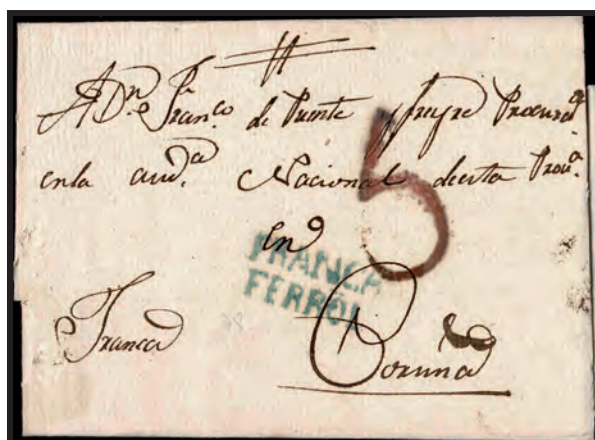 A Dn. Franco. de Puente y freyre Procuror.
en la aud.a Nacional de esta Prov.a
en
5
FRANCA
FERROL
Franca
Coruña